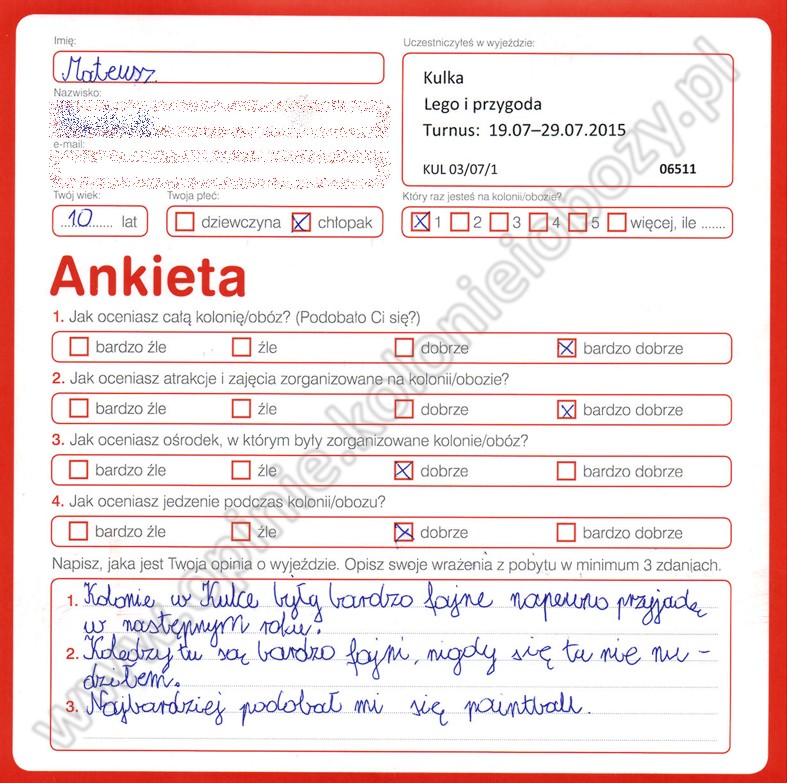 Imię:
Mateusz
Uczestniczyłeś w wyjeździe:
Kulka
Lego i przygoda
Turnus: 19.07–29.07.2015
KUL 03/07/1 06511
Nazwisko:
e-mail:
Twój wiek:
...10...... lat
Twoja płeć:
dziewczyna chłopak
Który raz jesteś na kolonii/obozie?
1 2 3 4 5 więcej, ile .......
Ankieta
1. Jak oceniasz całą kolonię/obóz? (Podobało Ci się?)
bardzo źle źle dobrze bardzo dobrze
2. Jak oceniasz atrakcje i zajęcia zorganizowane na kolonii/obozie?
bardzo źle źle dobrze bardzo dobrze
3. Jak oceniasz ośrodek, w którym były zorganizowane kolonie/obóz?
bardzo źle źle dobrze bardzo dobrze
4. Jak oceniasz jedzenie podczas kolonii/obozu?
bardzo źle źle dobrze bardzo dobrze
Napisz, jaka jest Twoja opinia o wyjeździe. Opisz swoje wrażenia z pobytu w minimum 3 zdaniach.
1. Kolonie w Kulce były bardzo fajne napewno przyjadę
w następnym roku.
2. Koledzy tu są bardzo fajni, nigdy się tu nie nu-
dziłem.
3. Najbardziej podobał mi się paintball.
www.opinie.kolonieiobozy.pl